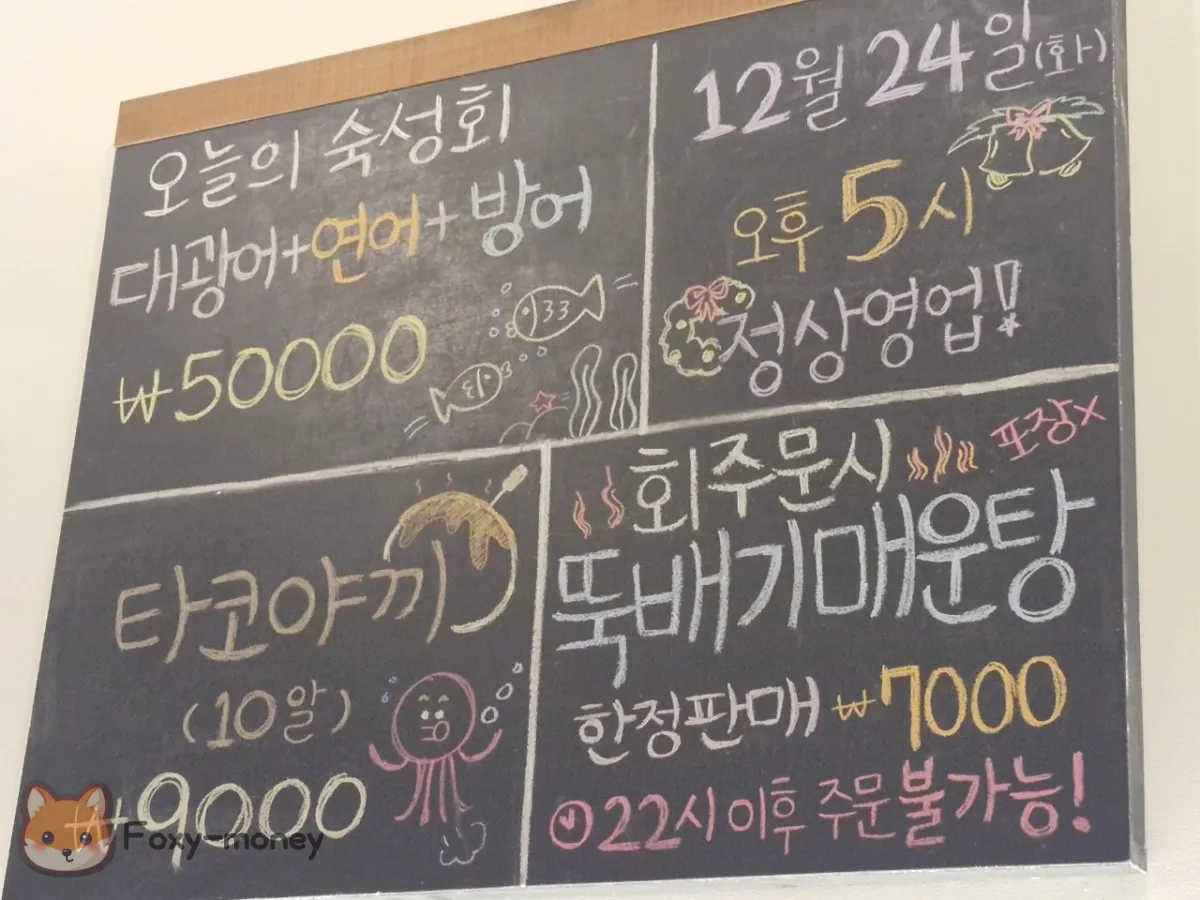 오늘의 숙성회
대광어+연어+방어
₩50000
12월 24일(화)
오후 5시
정상영업!
타코야끼
(10알)
₩9,000
회주문시
포장x
뚝배기매운탕
한정판매 ₩7000
22시 이후 주문불가능!
Foxy-money